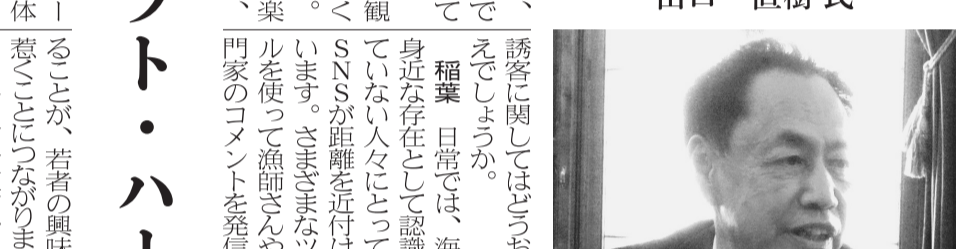 、
で
て
観
く
。
楽
、
誘客に関してはどうお
えでしょうか。
稲葉　日常では、海
身近な存在として認識
ていない人々にとって
SNSが距離を近付け
います。さまざまなツ
ルを使って漁師さんや
門家のコメントを発信
ト・ハ
ー
体
ることが、若者の興味
惹くことにつながりま